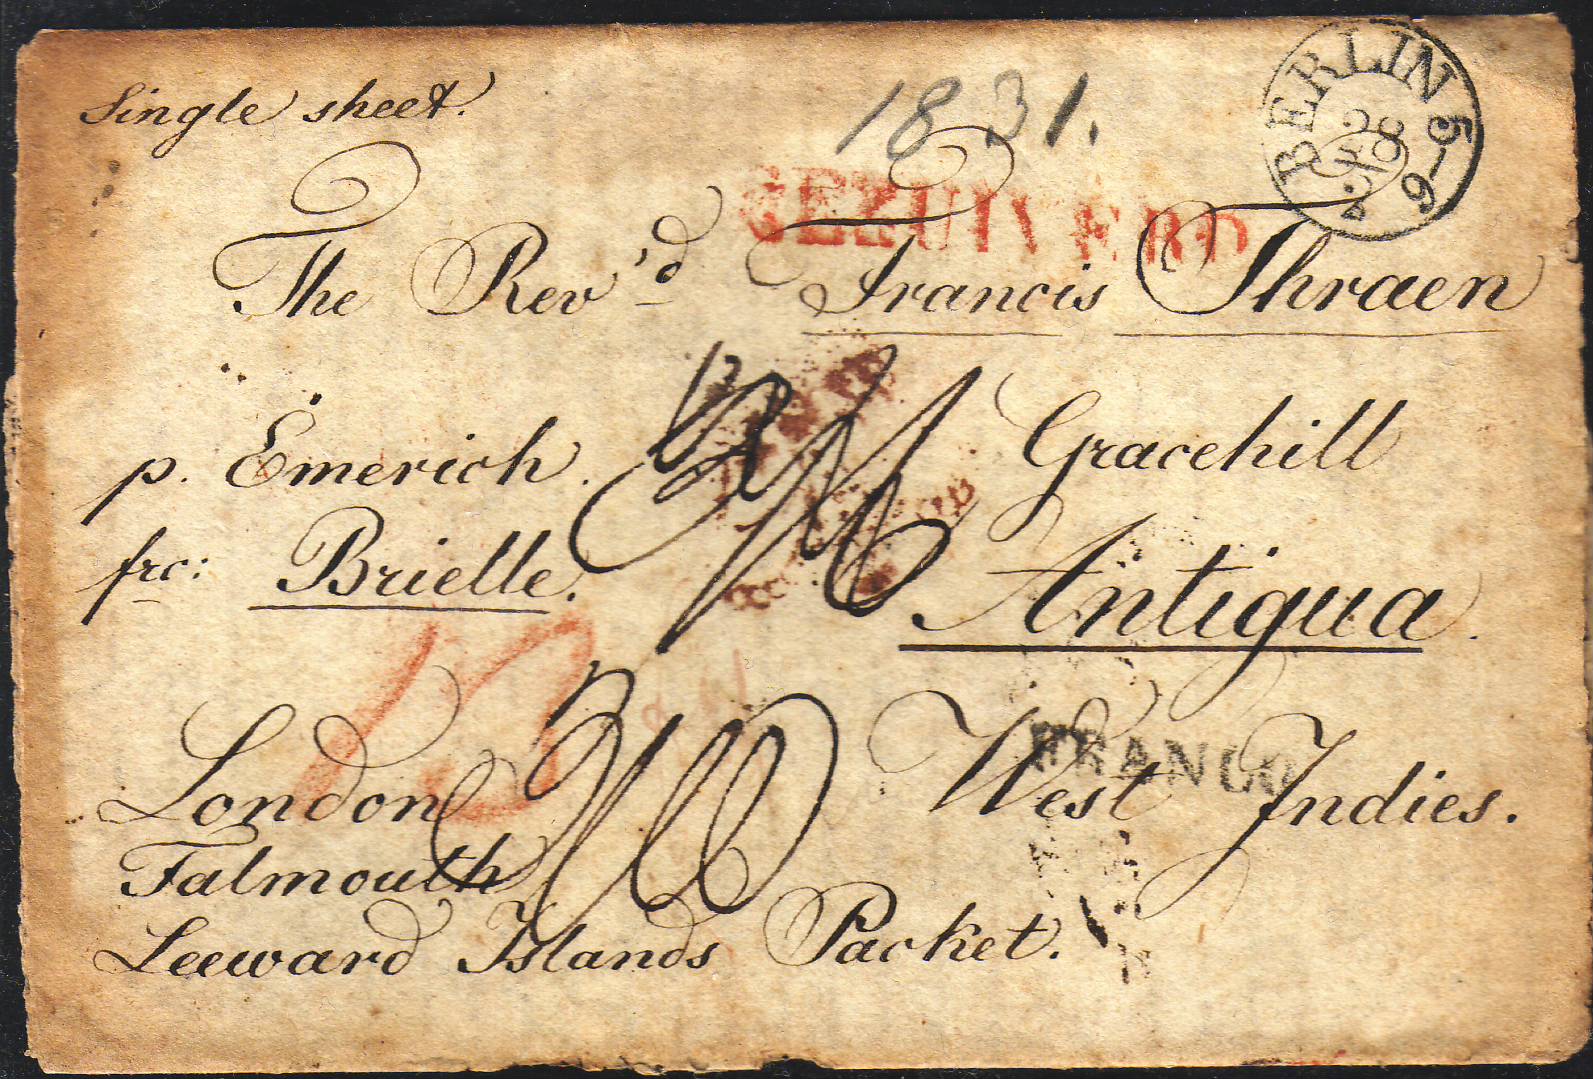 Single sheet.
1831.
BERLIN 5-6
28
2
GEZUIVERD
The Rev'd Francis Thraen
p. Emerich. Gracehill
frc: Brielle. Antigua.
13
London West Indies.
FRANCO
Falmouth
Leeward Islands Packet.